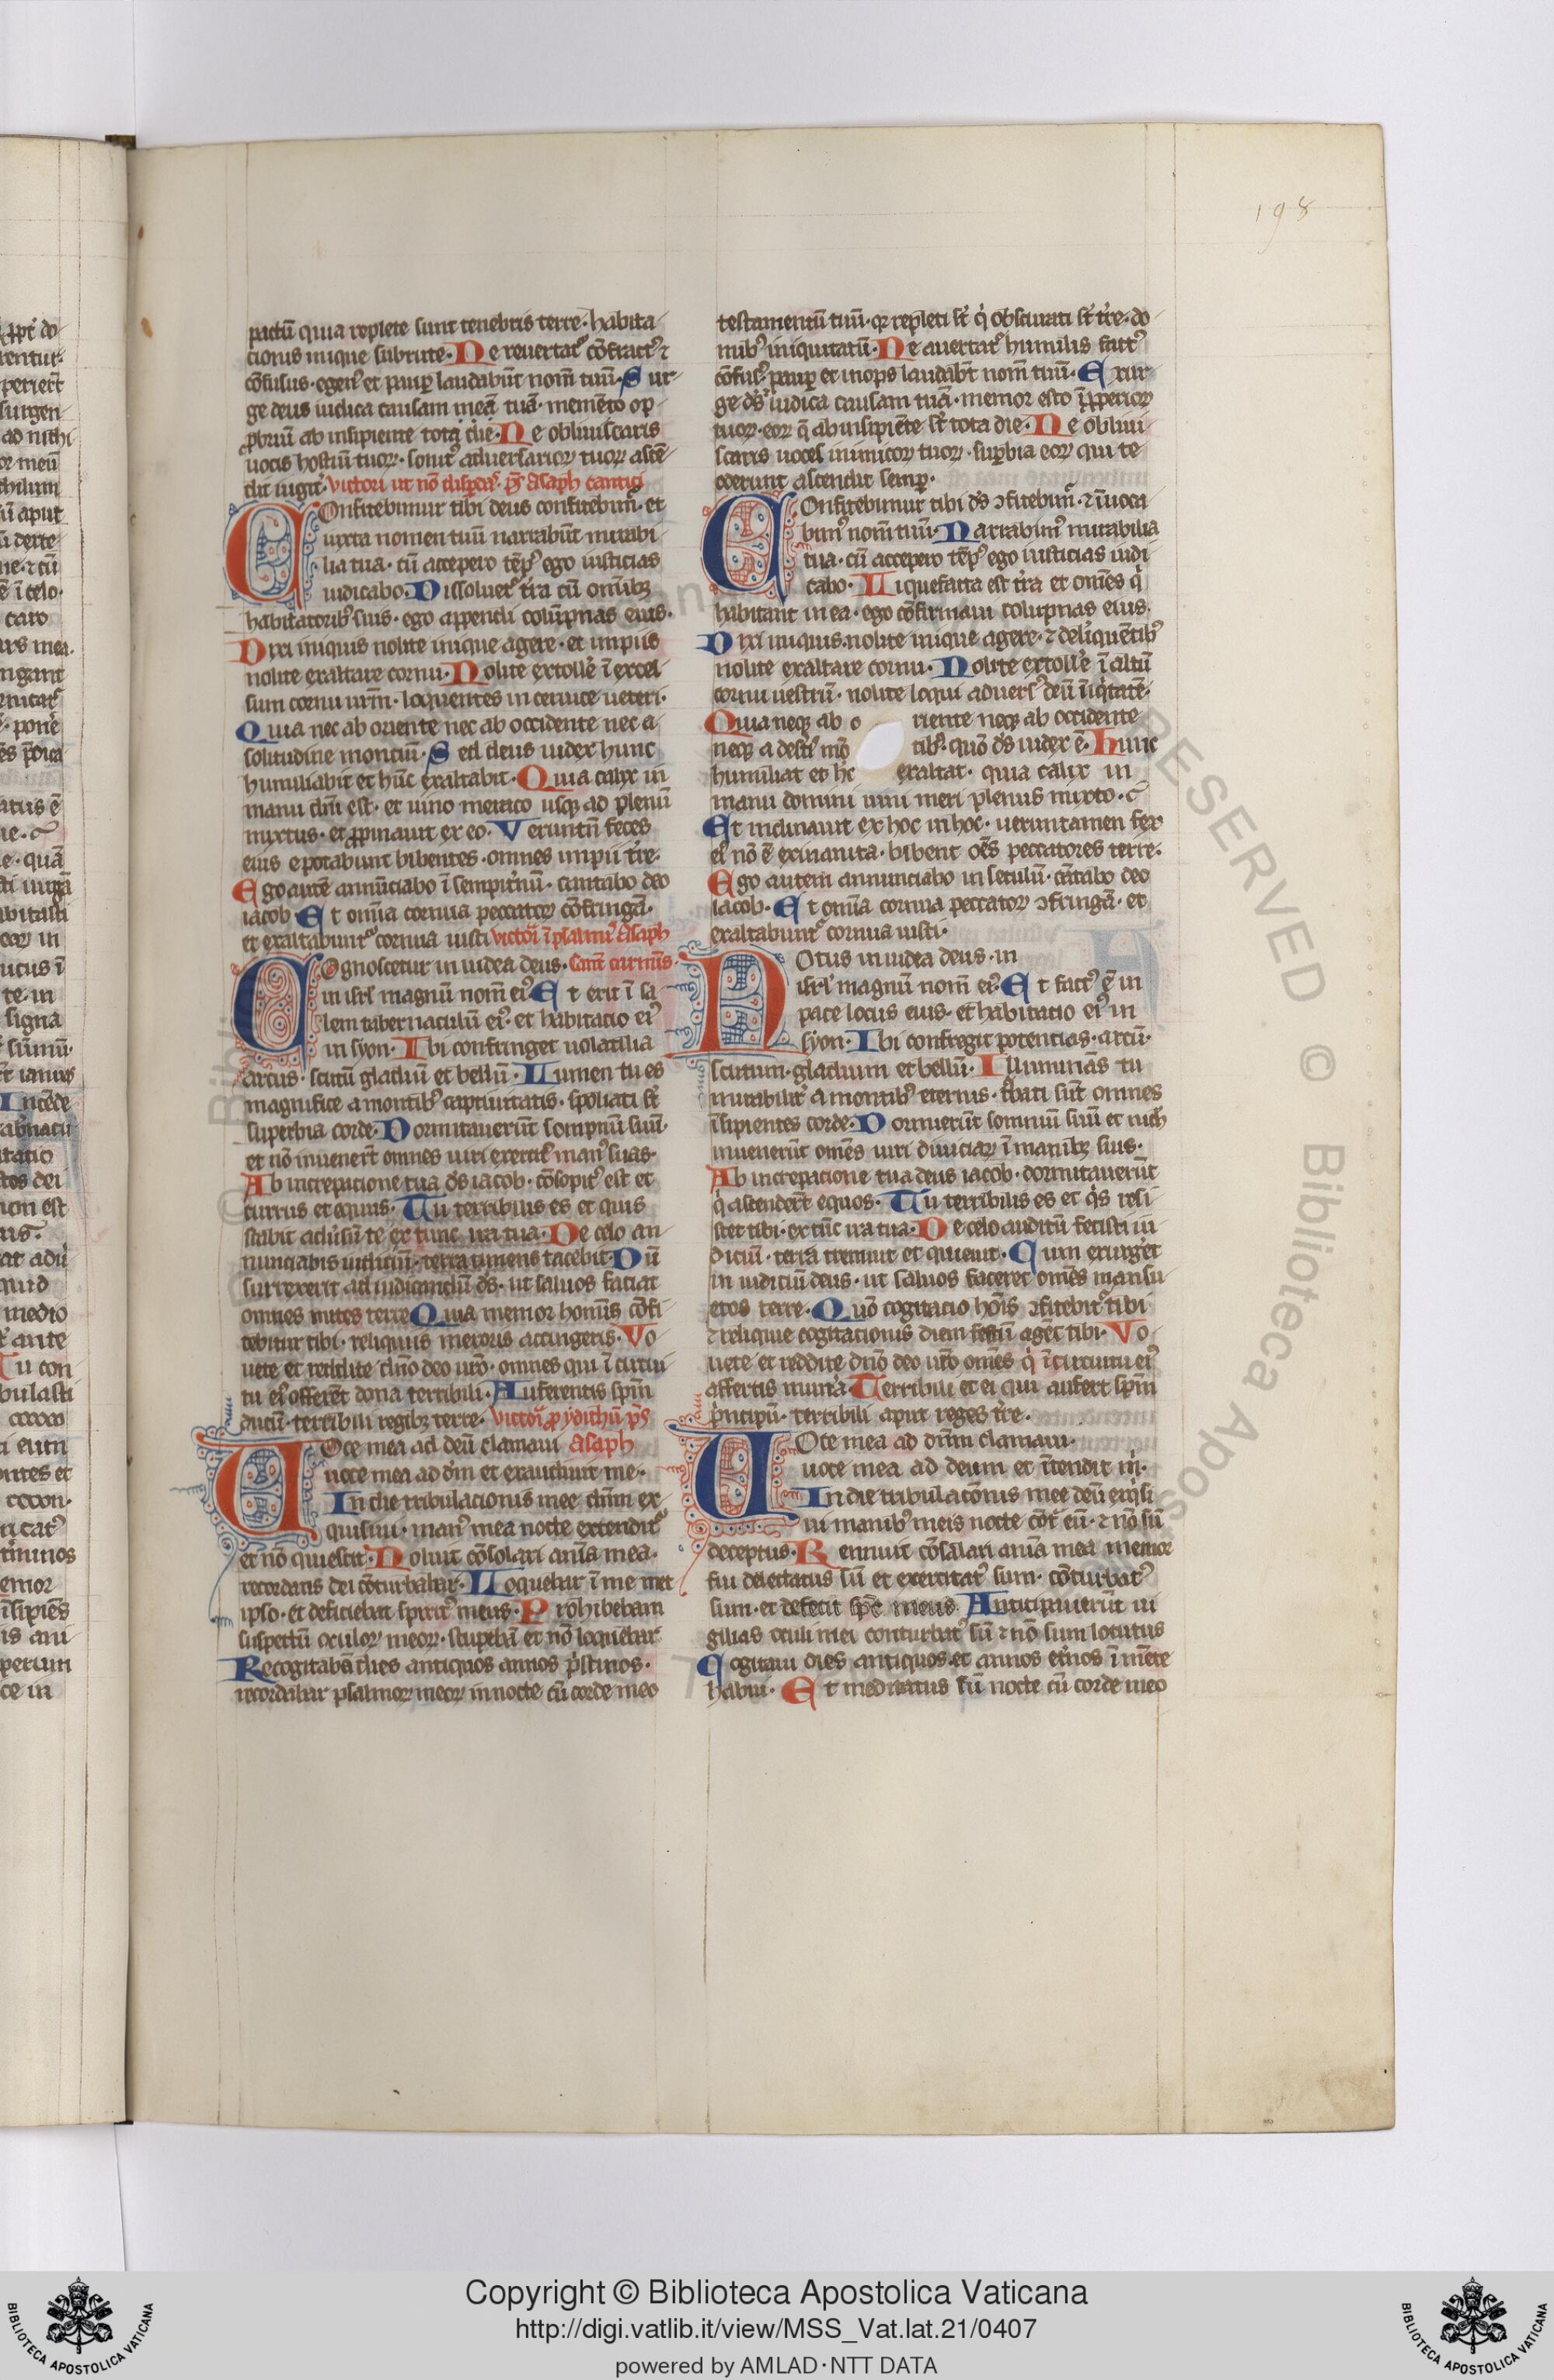 198
pactū quia replete sunt tenebris terre · habita
cionis inique subrute · Ne revertat᷑ cōfractꝰ ⁊
cōfusus · egenꝰ et paup laudabūt nom̄ tuū · Sur
ge deus iudica causam meā tuā · memēto op
probriū ab insipiente tota die · Ne obliuiscaris
uocis hostiū tuoꝝ · sonitꝰ adversarioꝝ tuoꝝ ascē
dit iugit᷑ · victori ut nō dispdas ps̄ Asaph cantici
Confitebimur tibi deus confitebim᷑ · et
iuxta nomen tuū narrabūt mirabi
lia tua · cū accepero tēpꝰ ego iusticias
iudicabo · Dissoluet᷑ t̄ra cū om̄ibꝫ
habitatoribꝰ suis · ego appendi colūpnas eius ·
Dixi iniquis nolite inique agere · et impiis
nolite exaltare cornu · Nolite extolle᷑ ī excel
sum cornu ur̄m · loquentes in ceruice ueteri ·
Quia nec ab oriente nec ab occidente nec a
solitudine montiū · Sed deus iudex hunc
humiliabit et hūc exaltabit · Quia calix in
manu dn̄i est · et uino meraco usqꝫ ad plenū
mixtus · et ꝓpinauit ex eo · Veruntn̄ feces
eius epotabunt bibentes · omnes impii t̄re ·
Ego autē annūciabo ī sempit᷑nū · cantabo deo
iacob Et omīa cornua peccatoꝝ cōfringā ·
et exaltabunt᷑ cornua iusti victorī ī psalmꝭ Asaph
Cognoscetur in iudea deus · Cant̄ carminis ·
in isrl̄ magnū nom̄ eiꝰ Et erit ī sa
lem tabernaculū eiꝰ · et habitatio eiꝰ
in syon · Ibi confringet uolatilia
arcus · scutū gladiū et bellū · Lumen tu es
magnifice a montibꝰ captiuitatis · spoliati st̄
superbia corde · Dormitauerūt sompnū suū ·
et nō invener̄t omnes uiri exercitꝰ manꝰ suas ·
Ab increpacione tua ds̄ iacob · cōsopitꝰ est et
currus et equus · Tu terribilis es et quis
stabit aduersū te ex tunc ira tua · De celo an
nunciabis iudiciū · terra timens tacebit · Dū
surrexerit ad iudicandū ds̄ · ut saluos faciat
omnes mites terre Quia memor hominis cōfi
tebitur tibi · reliquiis meroris accingeris · Vo
uete et reddite dn̄o deo uro̅ · omnes qui ī circui
tu eiꝰ offerēt dona terribili · Auferentis spm̄
ducū · terribili regibꝫ terre · victorī ꝓ ydithū ps̄
Voce mea ad deū clamaui Asaph
uoce mea ad dm̄ et exaudiuit me ·
In die tribulacionis mee dn̄m ex
quisiui · manꝰ mea nocte extendit᷑
et nō quiescit · Noluit cōsolari anīa mea ·
recordans dei cōturbabar · Loquebar ī me met
ipso · et deficiebat spiritꝰ meus · Prohibebam
suspectū oculoꝝ meoꝝ · stupebā et nō loquebar
Recogitabā dies antiquos annos p̄stinos ·
recordabar psalmoꝝ meoꝝ in nocte cū corde meo
testamentū tuū · qꝛ repleti st̄ qͥ obscurati st̄ t̄re · do
mibꝰ iniquitatū · Ne avertat᷑ humilis factꝰ
cōfusꝰ paup et inops laudabt̄ nom̄ tuū · Exur
ge ds̄ iudica causam tuā · memor esto īpꝓperioꝝ
tuoꝝ · eoꝝ q̄ ab insipiēte st̄ tota die · Ne obliui
scaris uoces inimicoꝝ tuoꝝ · supbia eoꝝ qui te
oderunt ascendit semp ·
Confitebimur tibi ds̄ ꝯfitebim᷑ · ⁊ īuoca
bimꝰ nom̄ tuū · Narrabimꝰ mirabilia
tua · cū accepero tēpꝰ ego iusticias iudi
cabo · Liquefacta est t̄ra et omēs qͥ
habitant in ea · ego cōfirmaui colupnas eius ·
Dixi iniquis · nolite inique agere · ⁊ deliquētibꝰ
nolite exaltare cornu · Nolite extolle᷑ ī altū
cornu uestrū · nolite loqui aduersꝰ deū īiqͥtatē ·
Quia neqꝫ ab oriente neqꝫ ab occidente
neqꝫ a desꝰtis mōtibꝰ · quō ds̄ iudex ē · hunc
humiliat et hc̄ exaltat · quia calix in
manu domini uini meri plenus mixto ·
Et inclinauit ex hoc in hoc · ueruntamen fex
eiꝰ nō ē exinanita · bibent oēs peccatores terre ·
Ego autem annunciabo in seculū · cātabo deo
iacob · Et omīa cornua peccatoꝝ ꝯfringā · et
exaltabunt᷑ cornua iusti ·
Notus in iudea deus · in
isrl̄ magnū nom̄ eiꝰ · Et factꝰ ē in
pace locus eius · et habitatio eiꝰ in
syon · Ibi confregit potencias · arcū ·
scutum · gladium et bellū · Illuminās tu
mirabilit᷑ a montibꝰ eternis · t᷑bati sūt omnes
īsipientes corde · Dormierūt somnū suū et nich
invenerūt omēs uiri diuiciaꝝ ī manibꝫ suis ·
Ab increpacione tua deus iacob · dormitauerūt
qͥ ascender̄t equos · Tu terribilis es et qͥs resi
stet tibi · ex tūc ira tua · De celo auditū fecisti iu
diciū · terra tremuit et quieuit · Cum exurg᷑et
in iudiciū deus · ut saluos faceret omēs mansu
etos terre · Quō cogitacio hoīs ꝯfitebit᷑ tibi
⁊ reliquie cogitacionis diem festū agēt tibi · Vo
uete et reddite dn̄o deo uro̅ omēs qͥ ī circuitu eiꝰ
affertis mun᷑a · Terribili et ei qui aufert spm̄
pͥncipū · terribili aput reges t̄re ·
Voce mea ad dn̄m clamaui ·
uoce mea ad deum et ītendit mͥ ·
In die tribulacōnis mee deū exqͥsi
ui manibꝰ meis nocte cōt᷑ eū · ⁊ nō sū
deceptus · Rennuit cōsolari anīa mea memor
fui delectatus sū et exercitatꝰ sum · cōturbatꝰ
sum · et defecit spc̄ meus Anticipauerūt ui
gilias oculi mei conturbatꝰ sū ⁊ nō sum locutus
Cogitaui dies antiquos · et annos et᷑nos ī mēte
habui · Et meditatus sū nocte cū corde meo
Copyright © Biblioteca Apostolica Vaticana
http://digi.vatlib.it/view/MSS_Vat.lat.21/0407
powered by AMLAD·NTT DATA
BIBLIOTECA APOSTOLICA VATICANA
BIBLIOTECA APOSTOLICA VATICANA